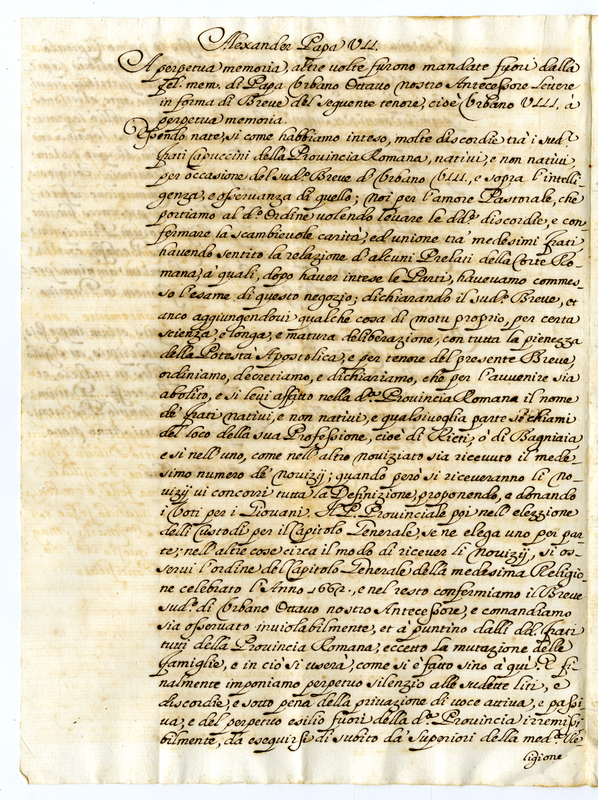 Alexander Papa VII.
A perpetua memoria, altre volte furono mandate fuori dalla
fel. mem. di Papa Urbano Ottavo nostro Antecessore levere
in forma di Breve del seguente tenore, cioè Urbano VIII. à
perpetua memoria.
Essendo nate, si come habbiamo inteso, molte discordie trà i sud.ti
frati Capuccini della Provincia Romana, nativi, e non nativi
per occasione del sud.o Breve d'Urbano VIII., e sopra l'intelli-
genza, e osservanza di quello; noi per l'amore Pastorale, che
portiamo al d.o Ordine volendo levare le dd.e discordie, e con
fermare la scambievole carità, ed unione trà medesimi frati
havendo sentito la relazione d'alcuni Prelati della Corte Ro-
mana, à quali, dopo haver intese le Parti, havevamo commes
so l'esame di questo negozio; dichiarando il sud.o Breve, et
anco aggiungendovi qualche cosa di motu proprio, per certa
scienza, e longa, e matura deliberazione, con tutta la pienezza
della Potestà Apostolica, e per tenore del presente Breve,
ordiniamo, decretiamo, e dichiariamo, che per l'avvenire sia
abolito, e si levi affatto nella d.a Provincia Romana il nome
de' frati nativi, e non nativi, e qualsivoglia parte si chiami
del loco della sua Professione, cioè di Rieti, ò di Bagniaia,
e si nell'uno, come nell'altro noviziato sia ricevuto il mede-
simo numero de' novizij; quando però si riceveranno li No-
vizij vi concorri tutta la Definizione, proponendo, e donando
i Voti per i Giovani. Il P. Provinciale poi nell'elezzione
delli Custodi per il Capitolo Generale, se ne elega uno per par
te; nell'altre cose circa il modo di ricever li Novizij, si os-
servi l'ordine del Capitolo Generale della medesima Religio
ne celebrato l'Anno 1662., e nel resto confermiamo il Breve
sud.o di Urbano Ottavo nostro Antecessore, e comandiamo
sia osservato inviolabilmente, et à puntino dalli dd. frati
tutti della Provincia Romana, eccetto la mutazione delle
famiglie, e in ciò si userà, come si è fatto sino à quì. E fi-
nalmente imponiamo perpetuo silenzio alle sudette liti, e
discordie, e sotto pena della privazione di voce attiva, e passi
va, e del perpetuo esilio fuori della d.a Provincia irremissi
bilmente, da eseguirsi di subito da' Superiori della med.a Re-
ligione